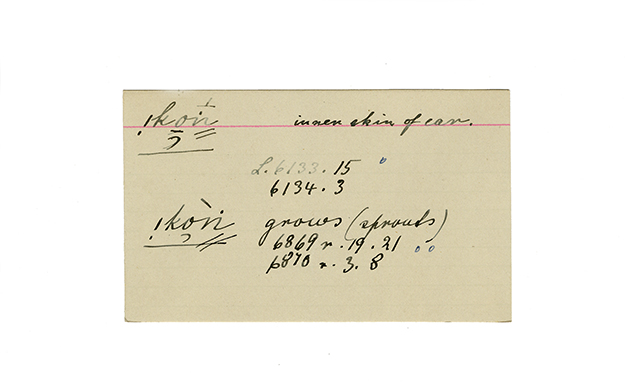 !kon inner skin of ear.
L.6133.15
6134.3
!kòn grows (sprouts)
6869 r. 19. 21
6870 r. 3. 8